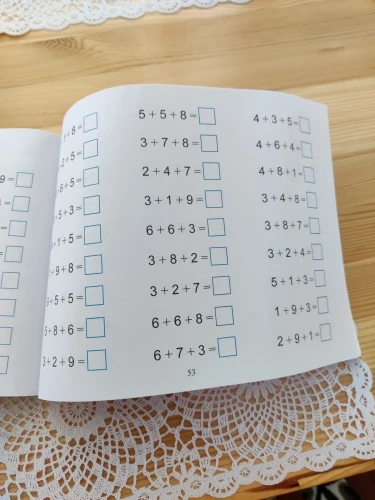 9=
+8=
2+5=
6+5=
5+3=
+1+5=
+9+8=
3+5+5=
5+8+6=
3+2+9=
5+5+8=
3+7+8=
2+4+7=
3+1+9=
6+6+3=
3+8+2=
3+2+7=
6+6+8=
6+7+3=
4+3+5=
4+6+4=
4+8+1=
3+4+8=
3+8+7=
3+2+4=
5+1+3=
1+9+3=
2+9+1=
53